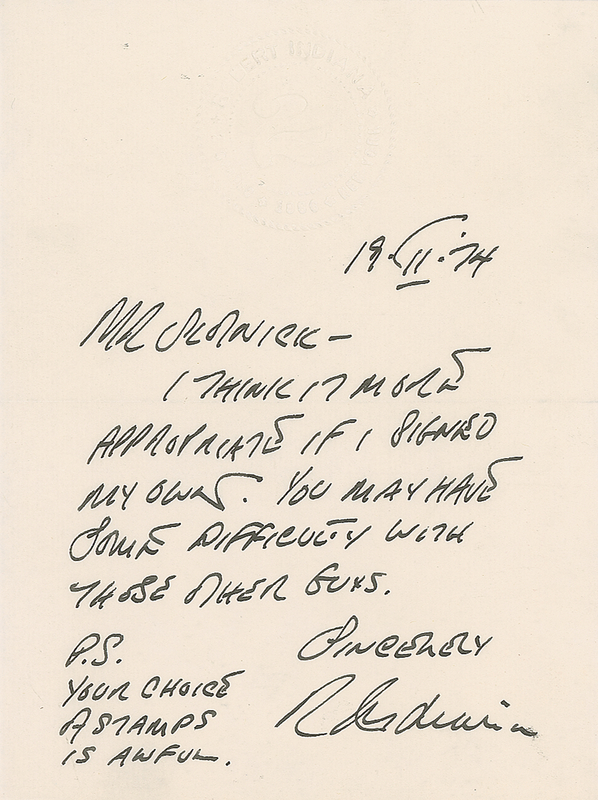 19·II·'74
MR –
I THINK IT MORE
APPROPRIATE IF I SIGNED
MY OWN. YOU MAY HAVE
SOME DIFFICULTY WITH
THOSE OTHER GUYS.
SINCERELY
P.S.
YOUR CHOICE
A STAMPS
IS AWFUL.